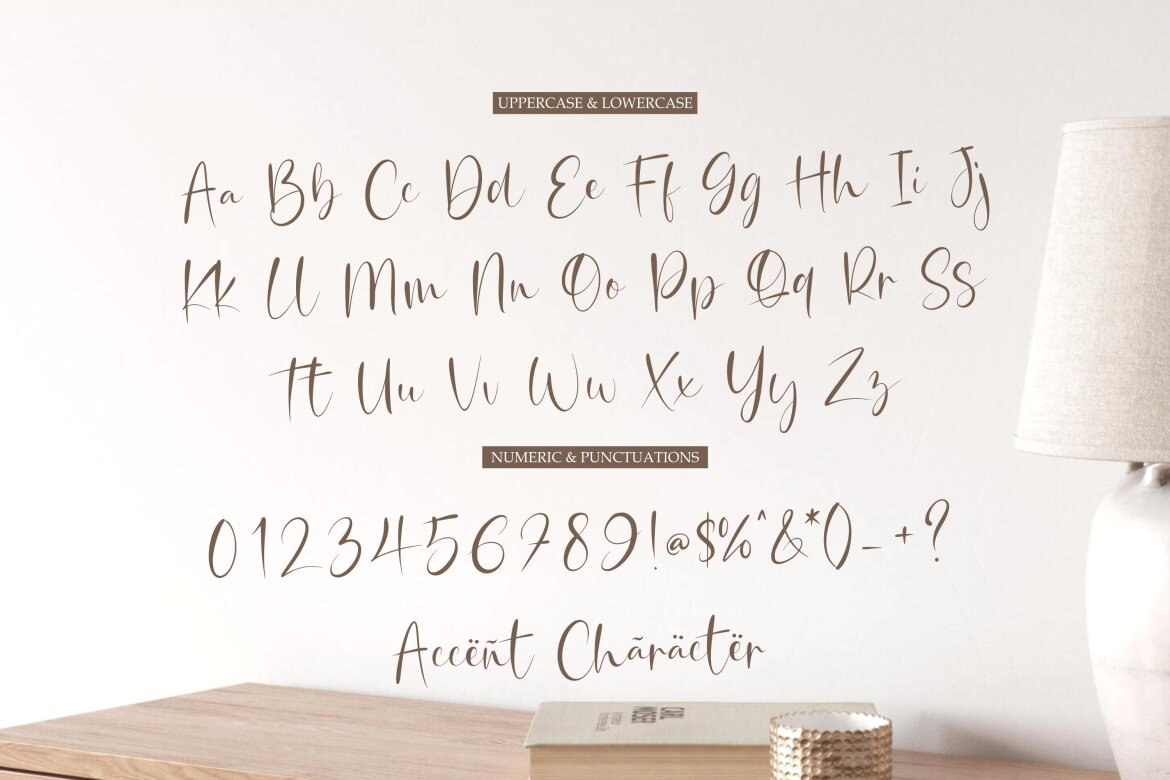 UPPERCASE & LOWERCASE
Aa Bb Cc Dd Ee Ff Gg Hh Ii Jj
Kk Ll Mm Nn Oo Pp Qq Rr Ss
Tt Uu Vv Ww Xx Yy Zz
NUMERIC & PUNCTUATIONS
0123456789!@$%^&*()_+?
Accëñt Chãräctër
CARL
MOSER